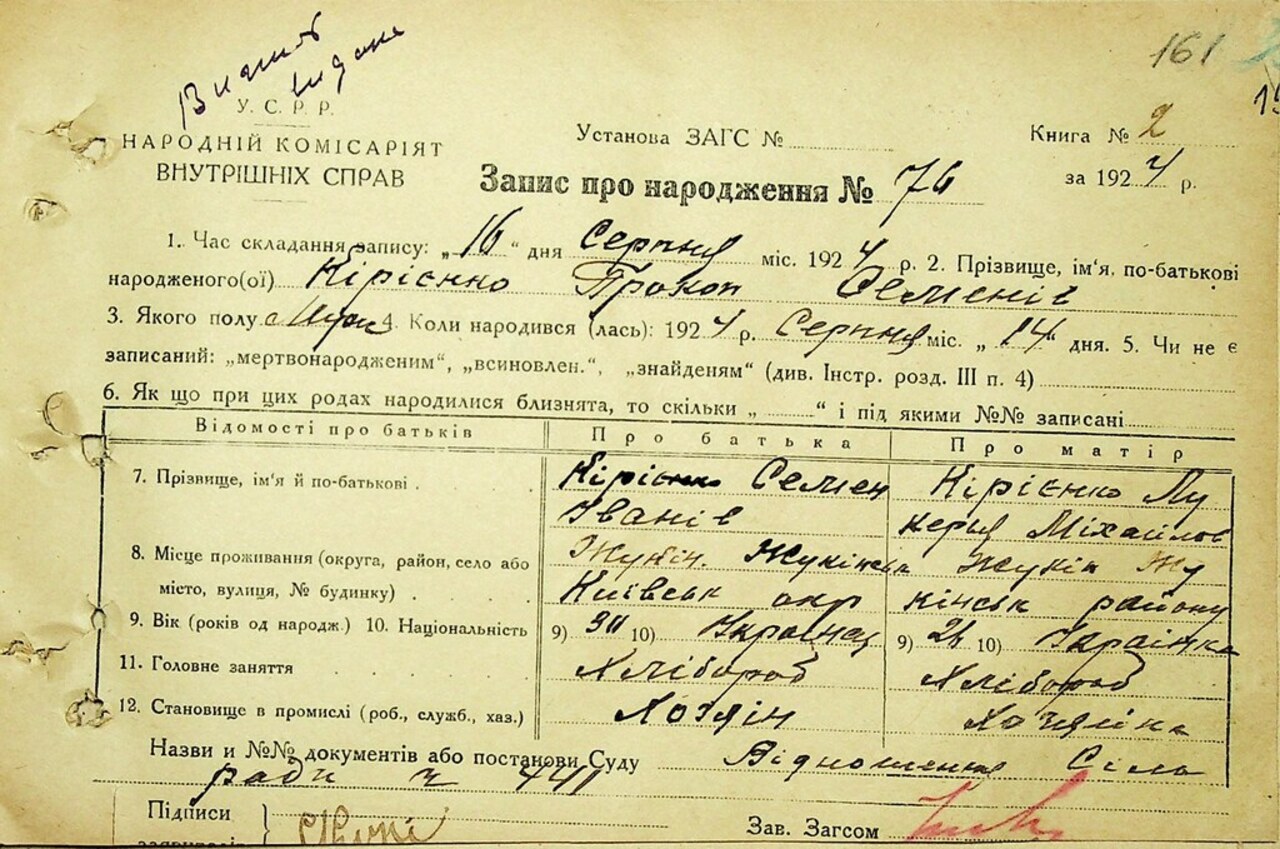 161
Витяг
видано
У. С. Р. Р.
НАРОДНІЙ КОМІСАРІЯТ
ВНУТРІШНІХ СПРАВ
Установа ЗАГС №
Книга № 2
за 1924 р.
Запис про народження № 76
1. Час складання запису: „16“ дня Серпня міс. 1924 р. 2. Прізвище, ім'я, по-батькові
народженого(ої) Кірієнко Прокоп Семенів
3. Якого полу 4. Коли народився (лась): 1924 р. Серпня міс. „14“ дня. 5. Чи не є
записаний: „мертвонародженим“, „всиновлен.“, „знайденям“ (див. Інстр. розд. III п. 4)
6. Як що при цих родах народилися близнята, то скільки „ “ і під якими №№ записані
Відомості про батьків Про батька Про матір
7. Прізвище, ім'я й по-батькові . Кірієнко Семен Кірієнко Лу
Іванів керья Міхайлов
8. Місце проживання (округа, район, село або Жукін. Жукінськ Жукін Жу
місто, вулиця, № будинку) . Київськ окр кінськ району
9. Вік (років од народж.) 10. Національність 9) 10) Українец 9) 26 10) Украінка
11. Головне заняття Хлібороб Хлібороб
12. Становище в промислі (роб., служб., хаз.) Хозяін Хозяіка
Назви и №№ документів або постанови Суду Відношення Сіль
ради ч
Підписи
Зав. Загсом